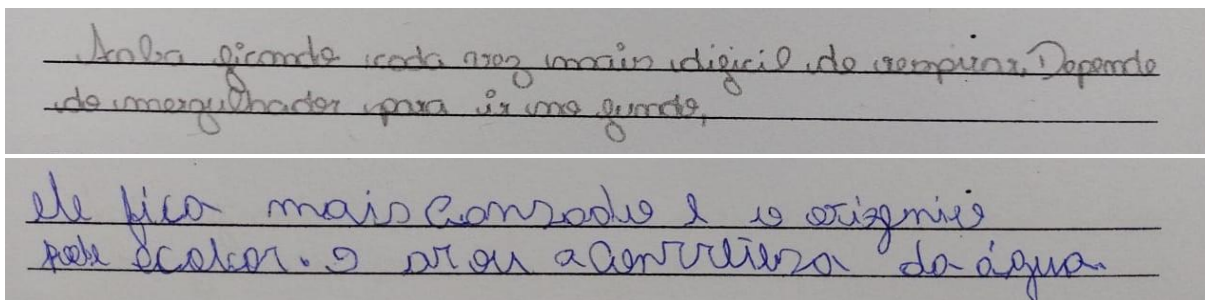 Acaba ficando cada vez mais dificil de respirar. Depende
do mergulhador para ir no fundo,
ele fica mais canzado e o oxigenio
pode acabar. o ar ou a correnteza da água.